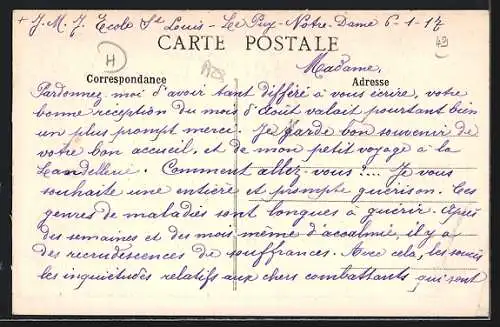 + J. M. J. Ecole St Louis - Le Puy-Notre-Dame 6-1-17
CARTE POSTALE
H
49
Madame,
Correspondance
Adresse
Pardonnez-moi d'avoir tant différé à vous écrire, votre
bonne réception du mois d'Août valait pourtant bien
un plus prompt merci. Je garde bon souvenir de
votre bon accueil, et de mon petit voyage à la
Landellerie. Comment allez-vous ?... Je vous
souhaite une entière et prompte guérison. Ces
genres de maladies sont longues à guérir. Après
des semaines et des mois même d'accalmie, il y a
des recrudescences de souffrances. Avec cela, les soucis
les inquiétudes relatifs aux chers combattants qui sont